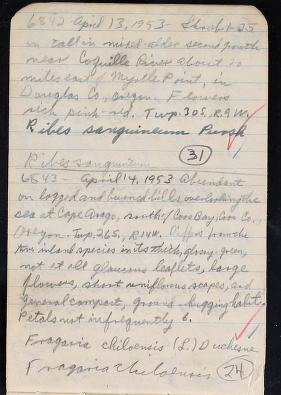 6842 April 13, 1953 - Shrub 1-25
m. tall in mixed-alder second growth
near Coquille River about 20
miles east of Myrtle Point, in
Douglas Co., Oregon. Flowers
rich pink-red. Twp. 30S, R.9W.
Ribes sanguineum Pursh
31
Ribes sanguineum
6843 - April 14, 1953 Abundant
on logged and burned hills overlooking the
sea at Cape Arago, south of Coos Bay, Coos Co.,
Oregon. Twp. 26S, R14W. Differs from the
inland species in its thick, glossy-green,
not at all glaucous leaflets, large
flowers, short uniflorous scapes, and
general compact, ground-hugging habit.
Petals not infrequently 6.
Fragaria chiloensis (L.) Duchesne
Fragaria chiloensis 24